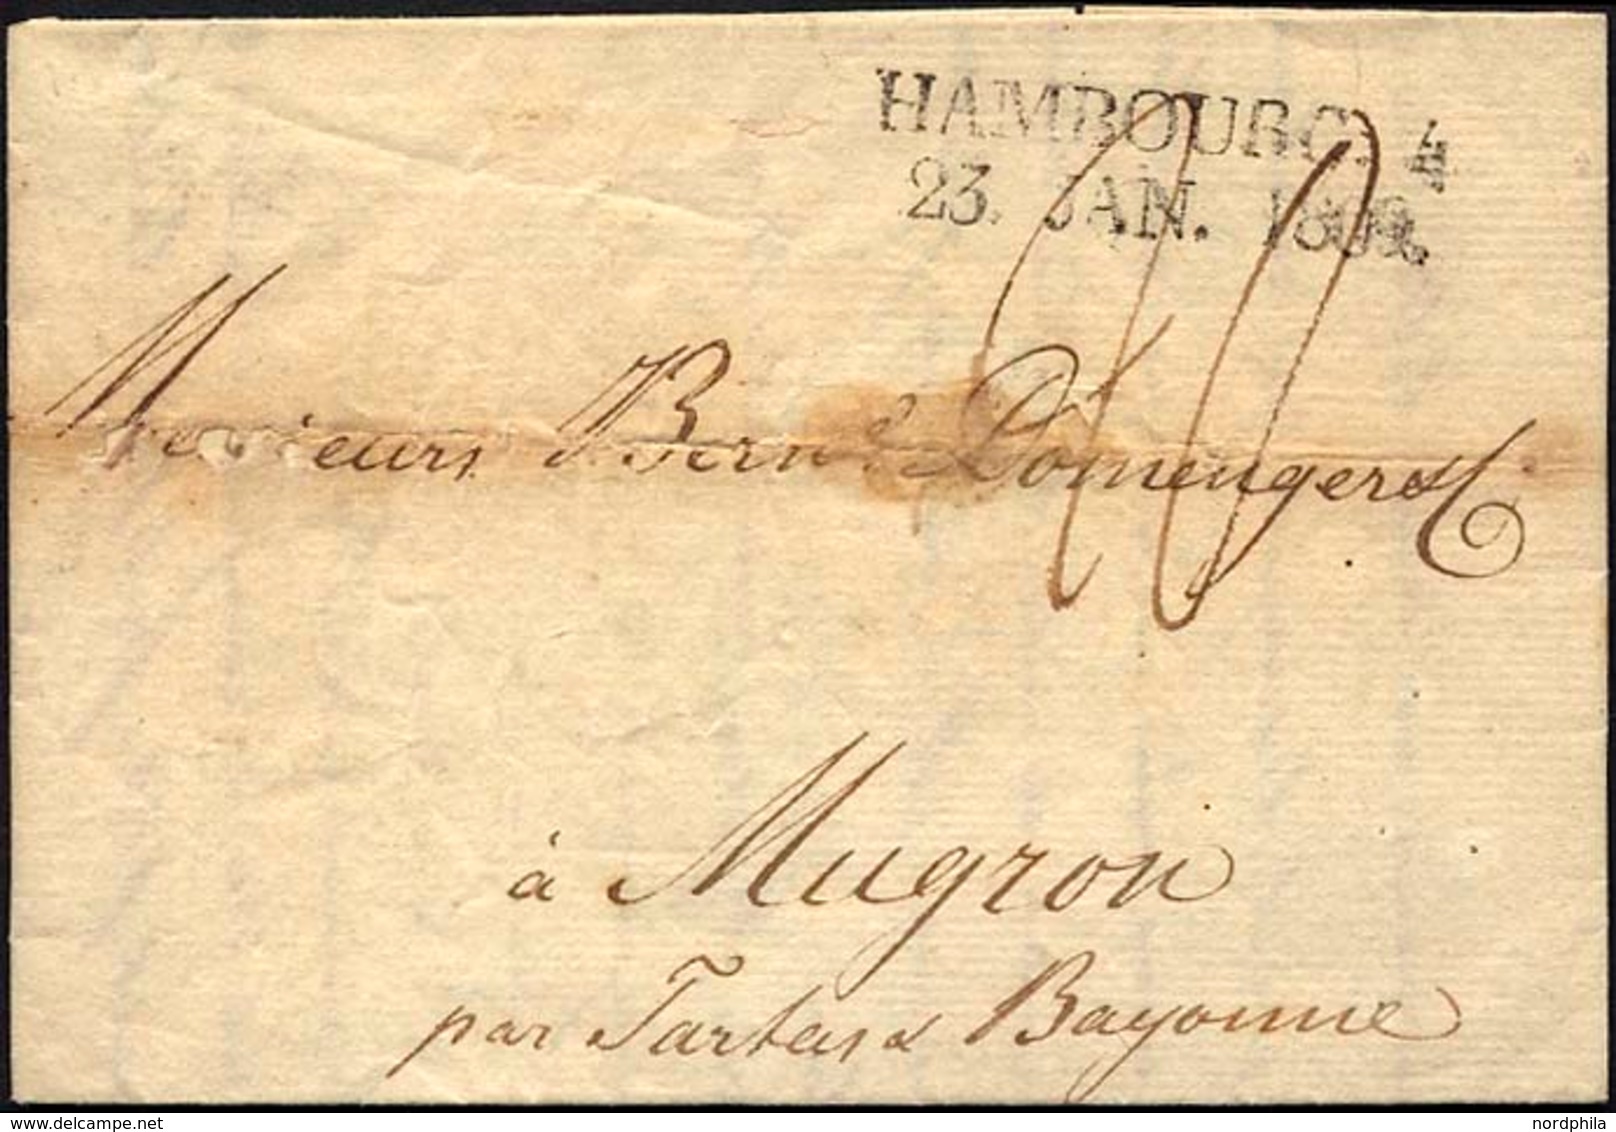 HAMBOURG. 4
23. JAN. 1809.
20
Messieurs Bern.d Domenger & C
à Mugron
par Tartas & Bayonne
nordphila